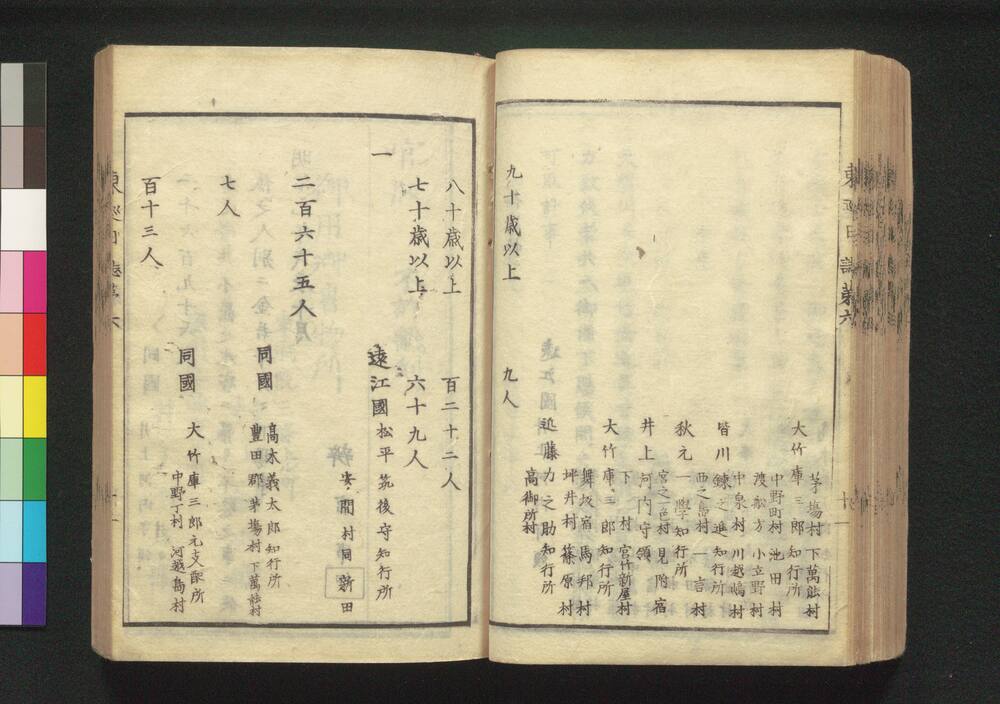 茅場村 下萬能村
大竹庫三郎知行所
中野町村 池田村
渡船方 小立野村
中泉村 川越嶋村
皆川錬之進知行所
西之嶋村 一言村
秋元一學知行所
宮之一色村 見附宿
井上河内守領
下村 宮竹新屋村
大竹庫三郎知行所
舞坂宿 馬郡村
坪井村 篠原村
近藤力之助知行所
高御所村
九十歳以上 九人
八十歳以上 百二十二人
七十歳以上 六十九人
一 遠江國松平筑後守知行所
安間村同新田
二百六十五人
同國高木義太郎知行所
豊田郡茅場村 下萬能村
七人
同國大竹庫三郎元支配所
中野丁村 河越嶋村
百十三人